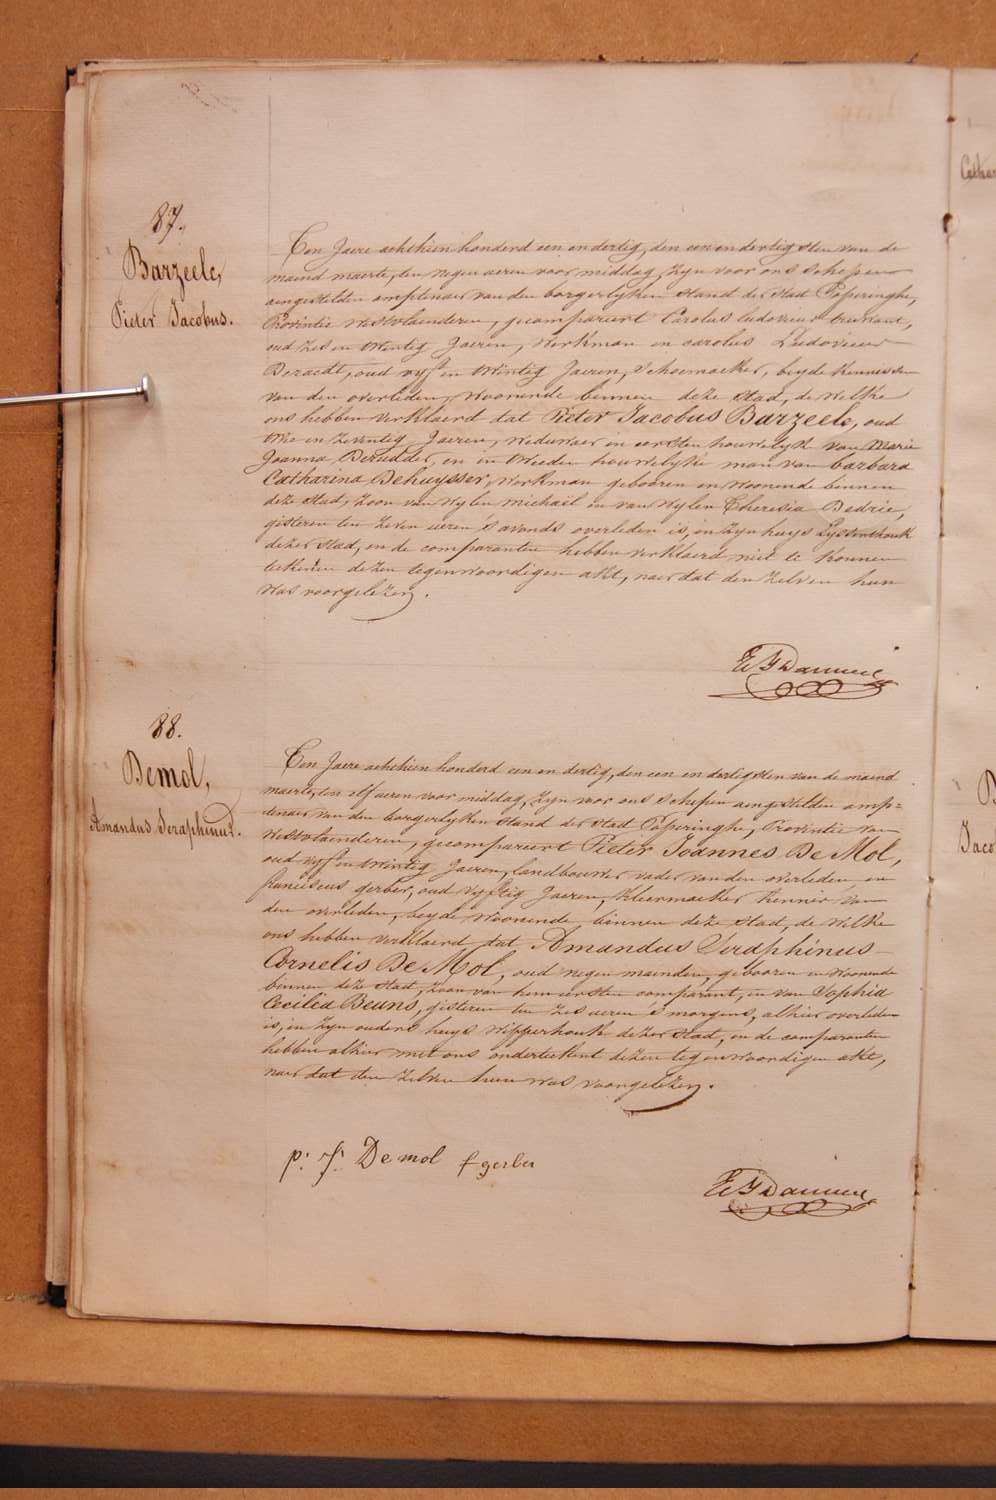 87.
Barzeele,
Pieter Jacobus.
Ten Jaere achthien honderd een en dertig, den een en dertigsten van de
maend maerte, ten negen ueren voor middag, zyn voor ons schepen
aengestelden amptenaer van den borgerlyken stand der stad Poperinghe,
Provintie westvlaenderen, gecompareert Carolus Ludovicus
oud zes en twintig Jaeren, werkman en carolus Ludovicus
Deraedt, oud vyf en twintig Jaeren, schoemaeker, beyde kennissen
van den overleden, woonende binnen deze stad, de welke
ons hebben verklaerd dat Pieter Jacobus Barzeele, oud
drie en zeventig Jaeren, weduwaer en eersten houwelyk van Marie
Joanna Derudder, en in tweeden houwelyke man van barbara
Catharina Dehuysser, werkman gebooren en woonende binnen
deze stad, zoon van wylen michael en van wylen Theresia Dedrie,
gisteren ten zeven ueren s'avonds overleden is, in zyn huys Lyssenthouk
dezer stad, en de comparanten hebben verklaerd niet te konnen
teekenen dezen tegenwoordigen akt, naer dat den zelven hun
was voorgelezen.
88.
Demol,
Amandus Seraphinus.
Ten Jaere achthien honderd een en dertig, den een en dertigsten van de maend
maerte, ten elf ueren voor middag, zyn voor ons schepen aengestelden amp=
tenaer van den borgerlyken stand der stad Poperinghe, Provintie van
westvlaenderen, gecompareert Pieter Joannes De Mol,
oud vyf en twintig Jaeren, landbouwer vader van den overleden, en
franciscus gerber, oud vyftig Jaeren, kleermaeker kennis van
den overleden, beyde woonende binnen deze stad, de welke
ons hebben verklaerd dat Amandus Seraphinus
Cornelis De Mol, oud negen maenden, gebooren en woonende
binnen deze stad, zoon van hem eersten comparant, en van Sophia
Cecilia Beuns, gisteren ten zes ueren s'morgens, alhier overleden
is, in zyn ouders huys wipperhouk dezer stad, en de comparanten
hebben alhier met ons onderteekent dezen tegenwoordigen akt,
naer dat den zelven hun was voorgelezen.
p: f: Demol f gerber